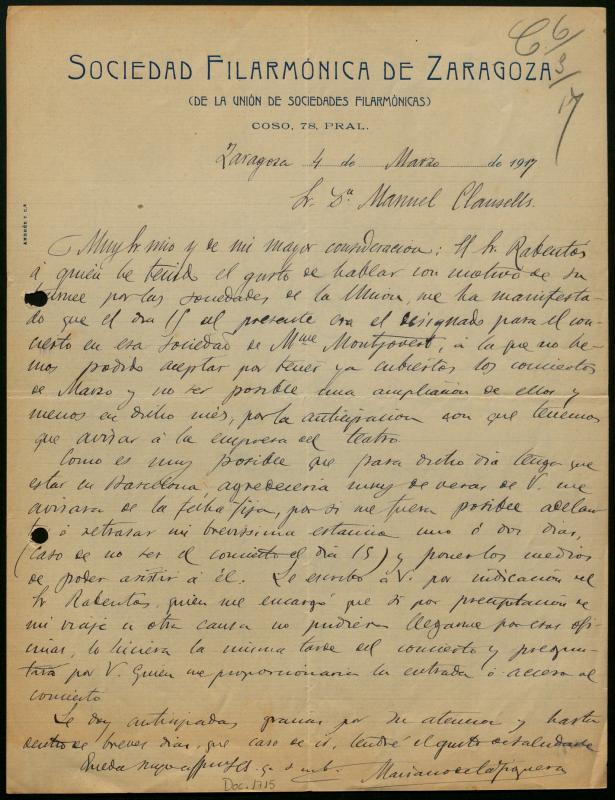 C. 6/3/17
SOCIEDAD FILARMÓNICA DE ZARAGOZA
(DE LA UNIÓN DE SOCIEDADES FILARMÓNICAS)
COSO, 78, PRAL.
Zaragoza 4 de Marzo de 1917
Sr. Dn. Manuel Clausells.
Muy Sr mio y de mi mayor consideracion: El Sr. Rabentós
á quien he tenido el gusto de hablar con motivo de su
tournee por las sociedades de la Union, me ha manifesta-
do que el dia 15 del presente era el designado para el con-
cierto en esa Sociedad de Mme Montjovert, á la que no he-
mos podido aceptar por tener ya cubiertos los conciertos
de Marzo y no ser posible una ampliación de ellos y
menos en dicho mes, por la anticipacion con que tenemos
que avisar á la empresa del teatro.
Como es muy posible que para dicho dia tenga que
estar en Barcelona, agradeceria muy de veras de V. me
avisara de la fecha fija, por si me fuera posible adelan-
tar ó retrasar mi brevissima estancia uno ó dos dias,
(caso de no ser el concierto el dia 15) y poner los medios
de poder asistir á él. Le escribo á V. por indicación del
Sr Rabentos, quien me encargó que si por precipitacion de
mi viaje u otra causa no pudiera llegarme por esas ofi-
cinas, lo hiciera la misma tarde del concierto y pregun-
tara por V. quien me proporcionaria la entrada ó acceso al
concierto
Le doy anticipadas gracias por su atencion y hasta
dentro de breves dias, que caso de ir, tendré el gusto de saludarle
queda suyo q. s. m. b. Mariano de la Figuera
Doc. 1715
ANDRÉS Y Cª